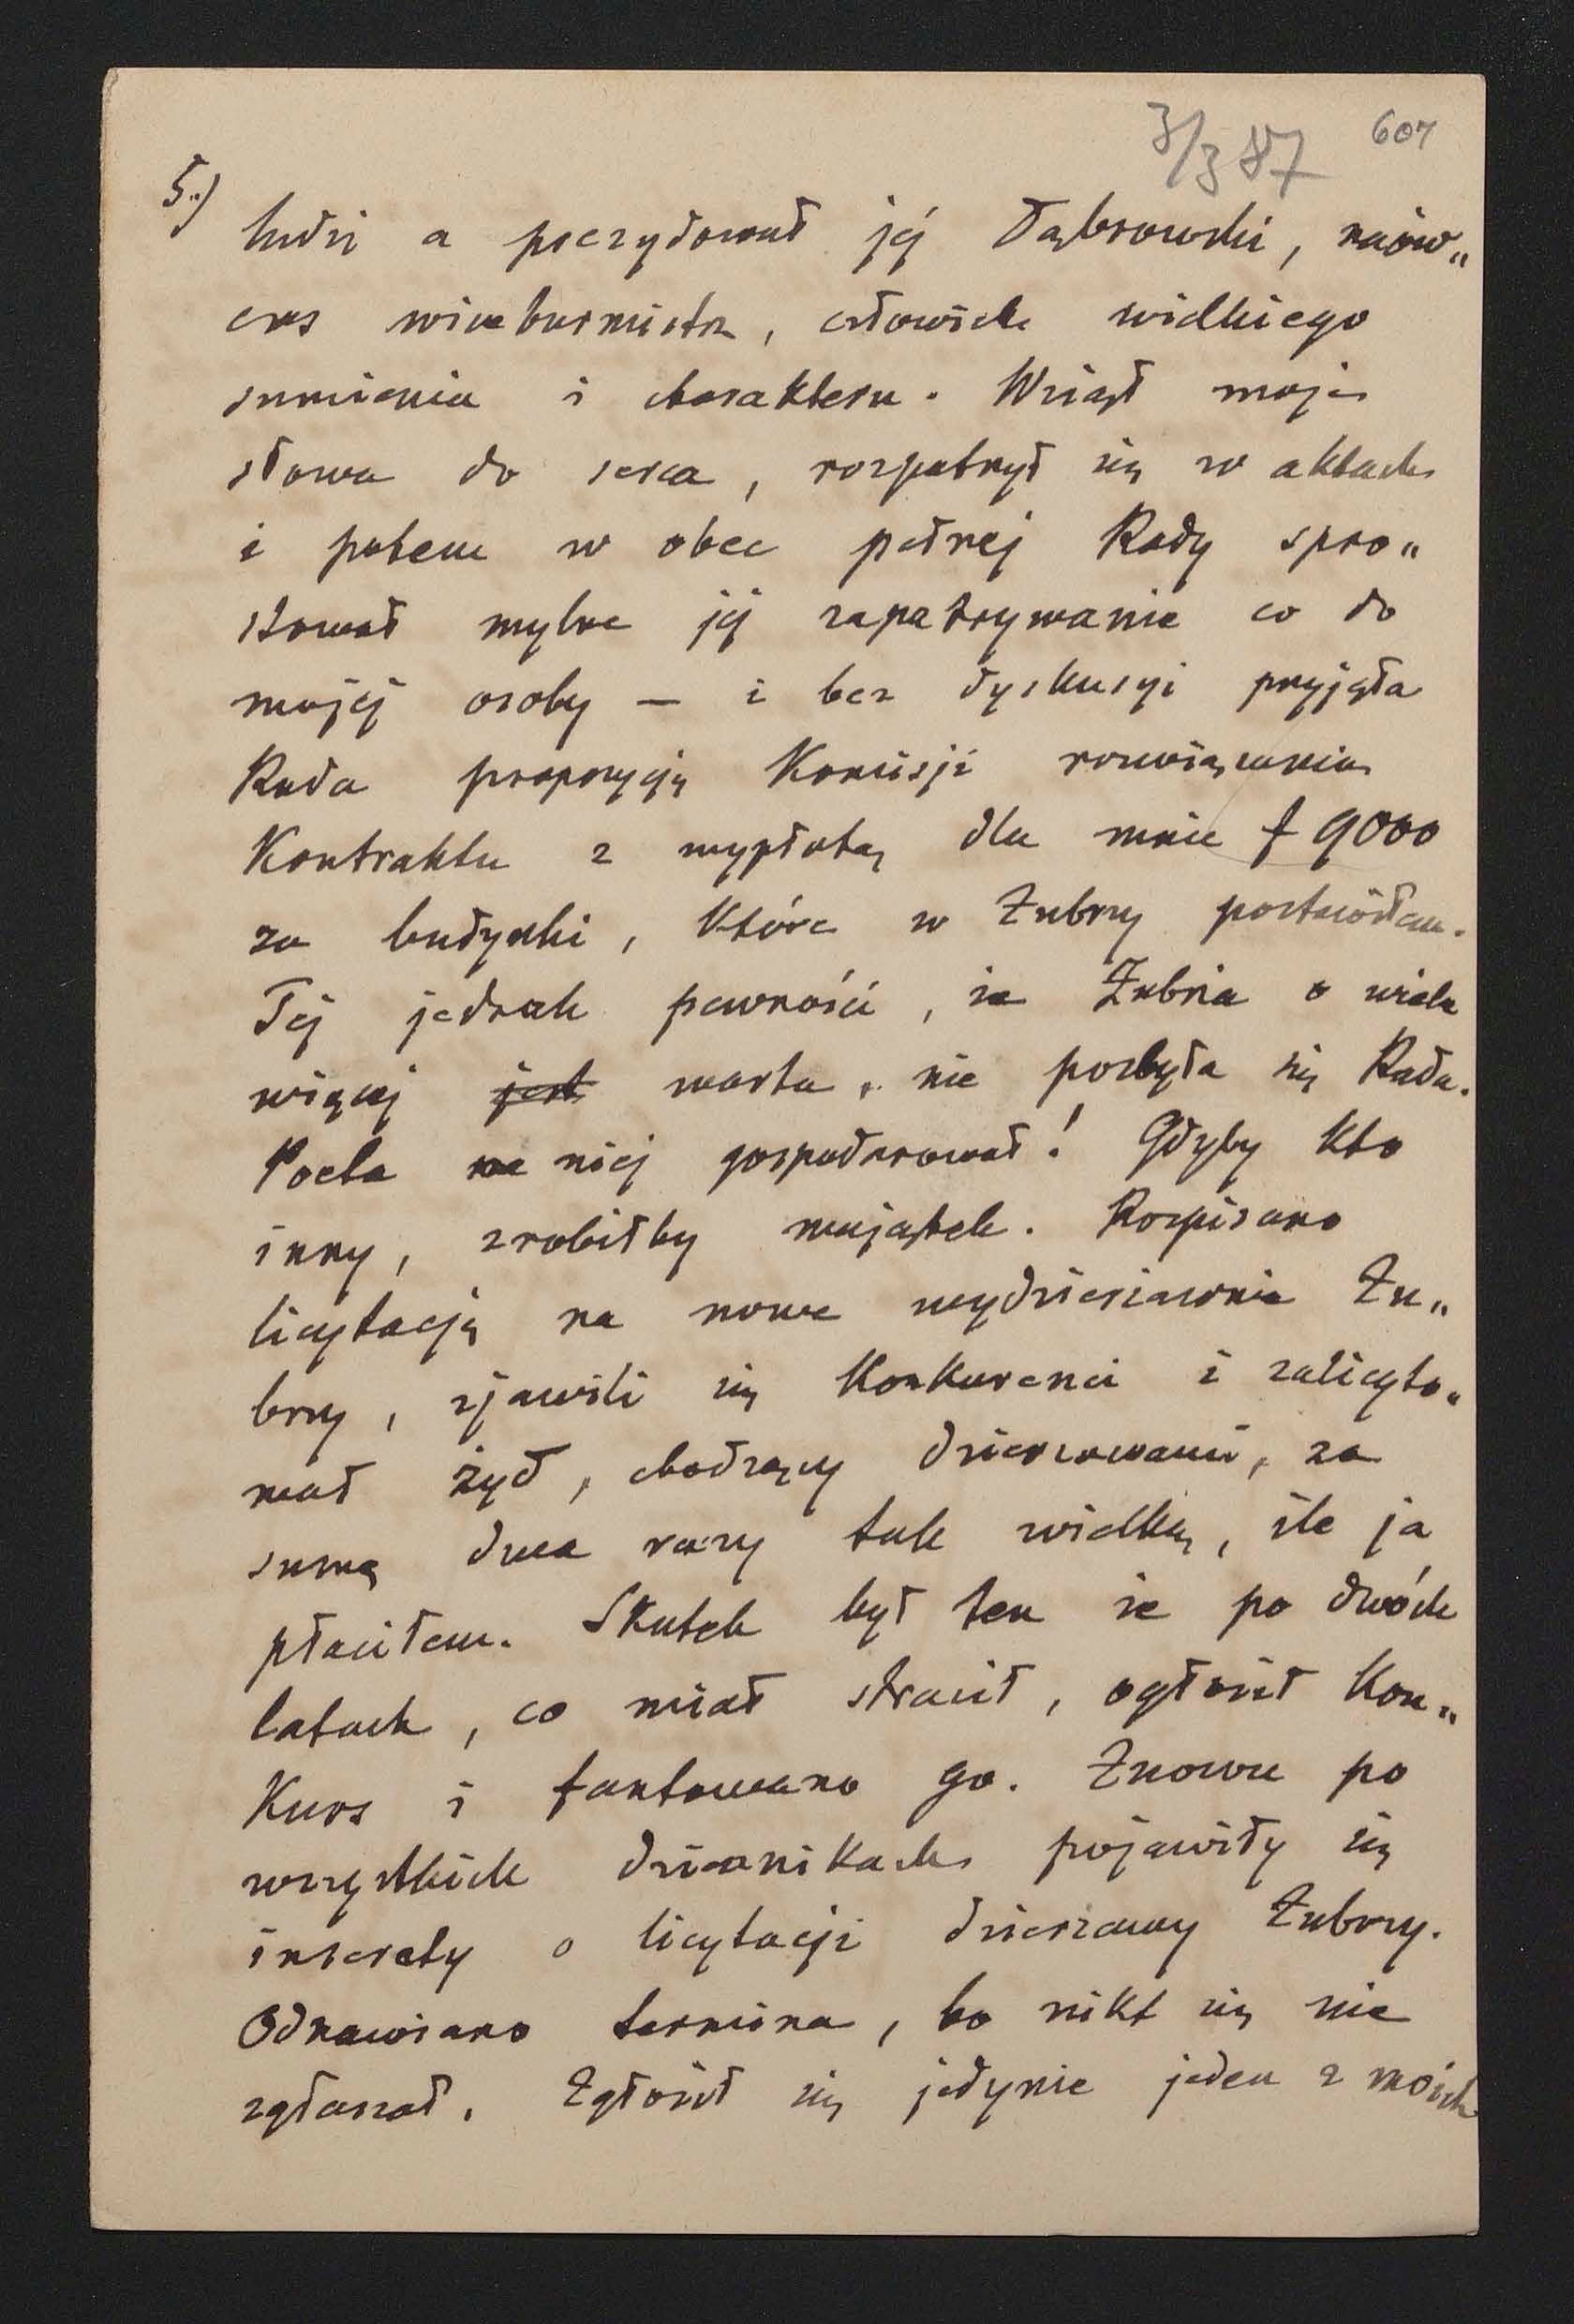 3/3 87 607
5.) ludzi a prezydował jej Dąbrowski, naów„
czas wiceburmistrz, człowiek wielkiego
sumienia i charakteru. Wziął moje
słowa do serca, rozpatrzył się w aktach
i potem w obec pełnej Rady spro„
stował mylne jej zapatrywanie co do
mojej osoby — i bez dyskusyi przyjęła
Rada propozycję Komisji rozwiązania
Kontraktu z wypłatą dla mnie f 9000
za budynki, które w Zubrzy postawiłem.
Tej jednak pewności, że Zubrza o wiele
więcej jest warta, nie pozbyła się Rada.
Poeta na niej gospodarował! Gdyby kto
inny, zrobiłby majątek. Rozpisano
licytację na nowe wydzierżawienie Zu„
brzy, zjawili się Konkurenci i zalicyto„
wał żyd, chodzący dzierżawami, za
sumę dwa razy tak wielką, ile ja
płaciłem. Skutek był ten że po dwóch
latach, co miał stracił, ogłosił Kon„
Kurs i fantowano go. Znowu po
wszystkich dziennikach pojawiły się
inseraty o licytacji dzierżawy Zubrzy.
Odnawiano termina, bo nikt się nie
zgłaszał. Zgłosił się jedynie jeden z moich